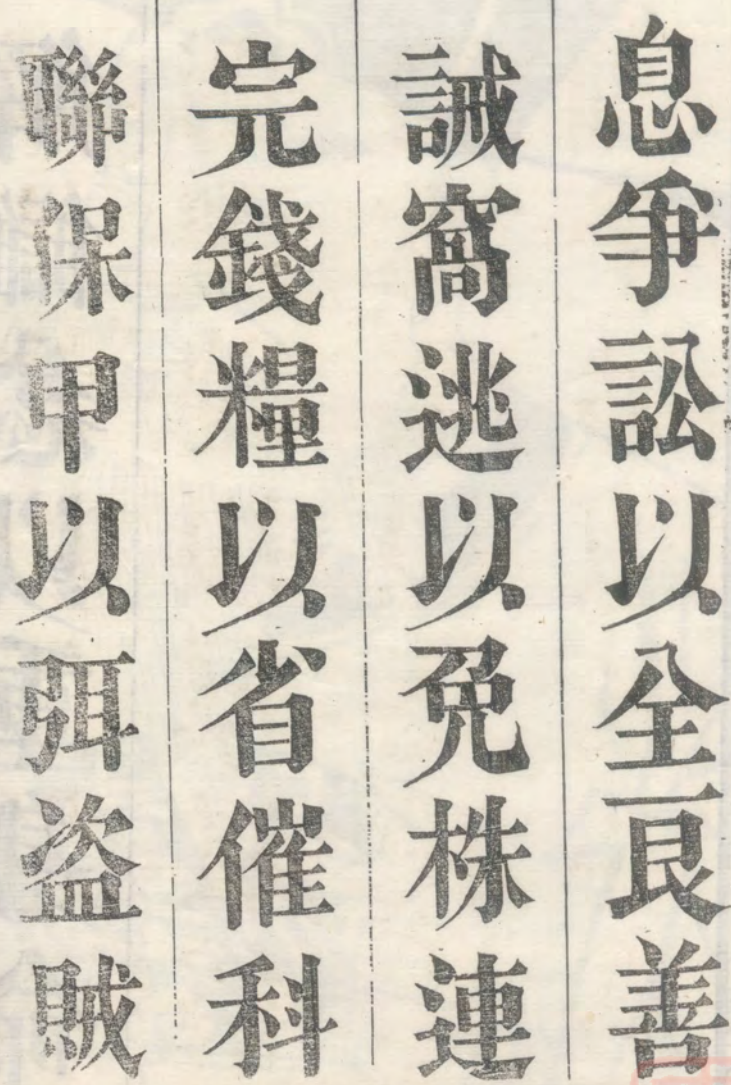 息爭訟以全良善
誡窩逃以免株連
完錢糧以省催科
聯保甲以弭盜賊